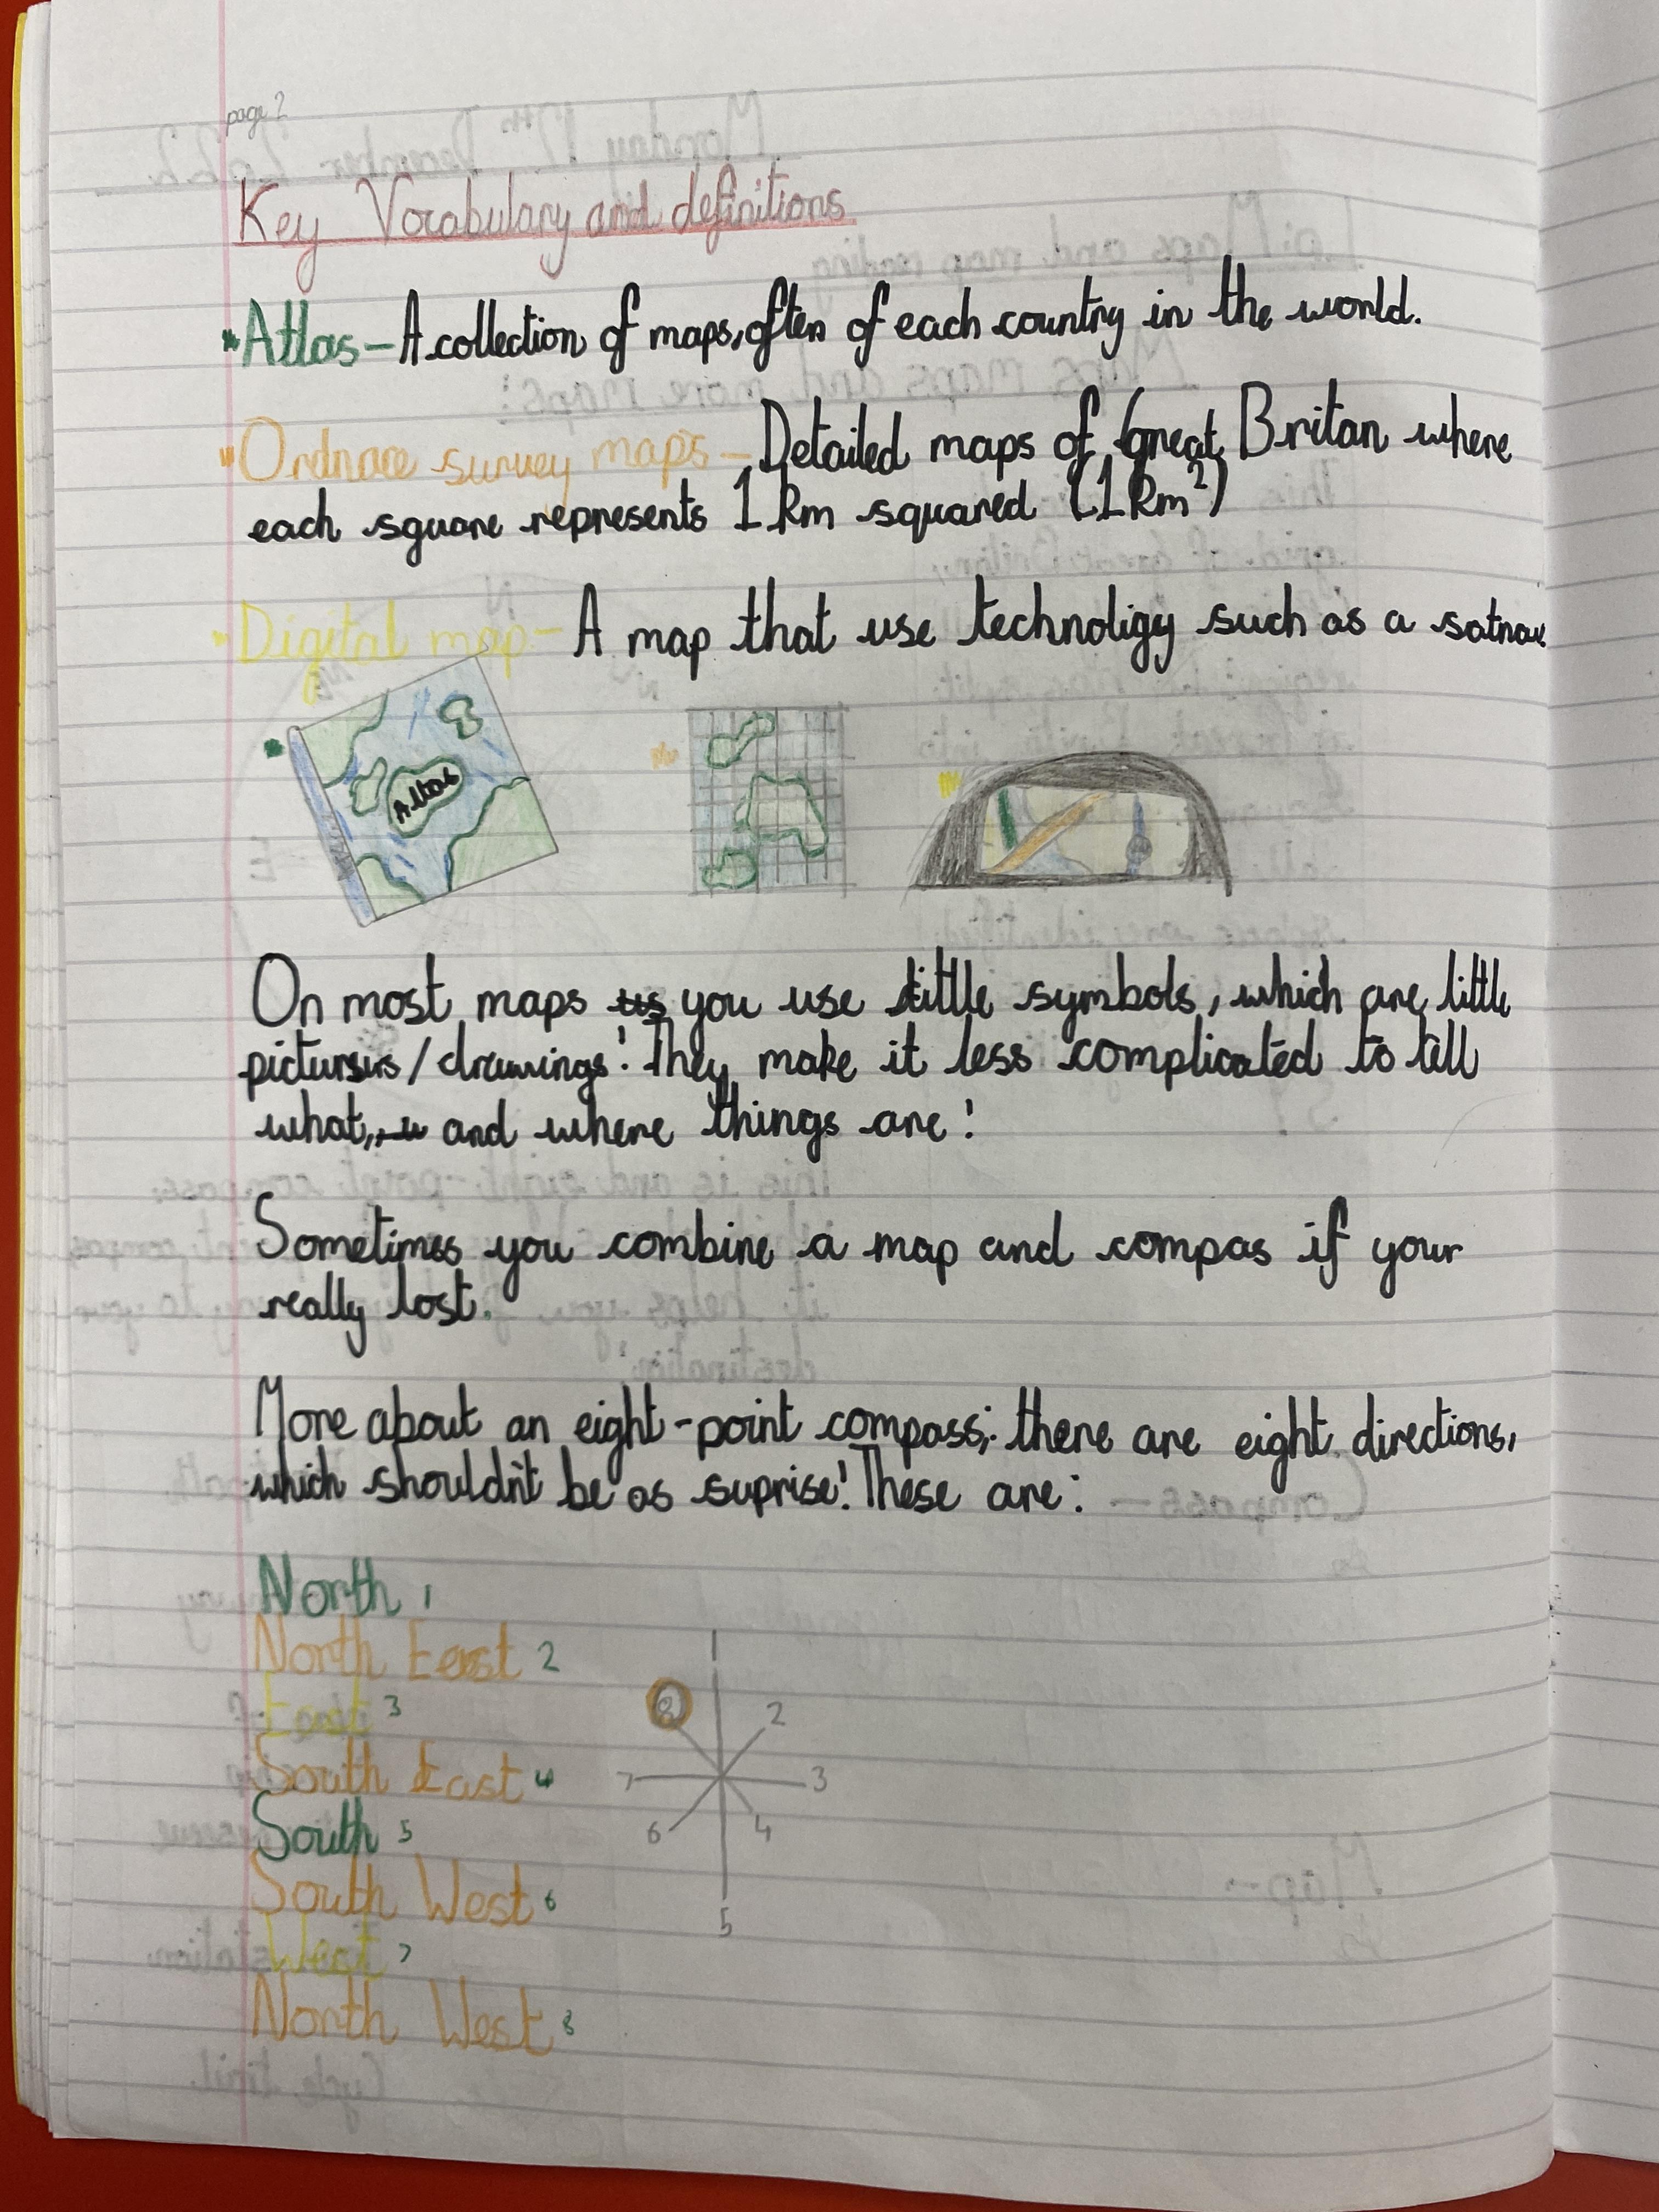 page 2
Key Vocabulary and definitions
Atlas - A collection of maps, often of each country in the world.
Ordnace survey maps - Detailed maps of Great Britan where
each square represents 1 km squared (1 km²)
Digital map - A map that use technoligy such as a satnav.
Atlas
On most maps us you use little symbols, which are little
pictures/drawings! They make it less complicated to tell
what, w and where things are!
Sometimes you combine a map and compas if your
really lost.
More about an eight-point compass; there are eight directions,
which shouldn't be as suprise! These are:
North 1
North East 2
East 3
South East 4
South 5
South West 6
West 7
North West 8
1
8 2
7 3
6 4
5